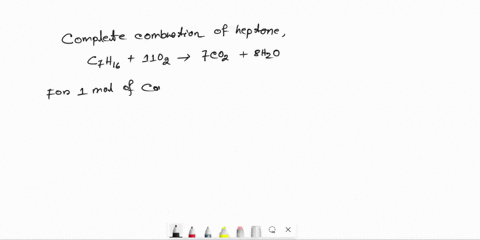 Complete combustion of heptane,
C₇H₁₆ + 11O₂ → 7CO₂ + 8H₂O
For 1 mol of Co